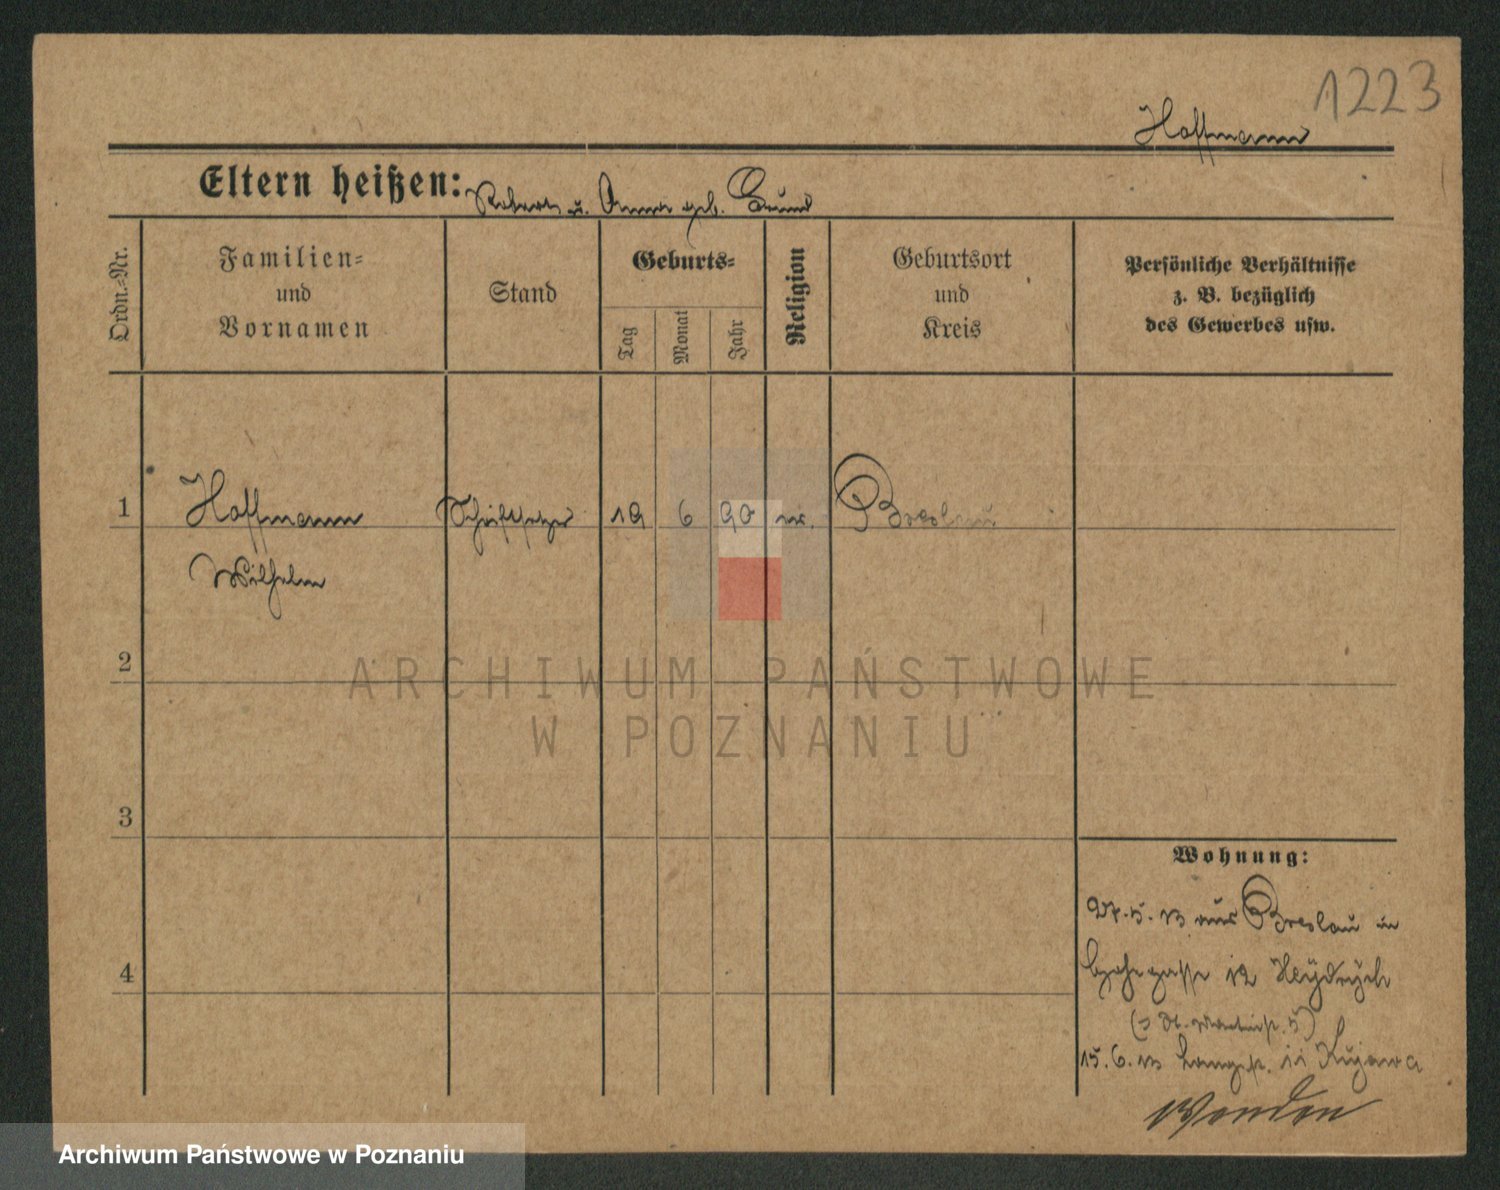 1223
Hoffmann
Eltern heißen: Robert u. Anna geb. Grund
Ordn.=Nr.
Familien=
und
Vornamen
Stand
Geburts=
Tag
Monat
Jahr
Religion
Geburtsort
und
Kreis
Persönliche Verhältnisse
z. B. bezüglich
des Gewerbes usw.
1
Hoffmann
Wilhelm
Schriftsetzer
19
6
90
ev.
Breslau
2
ARCHIWUM PAŃSTWOWE
W POZNANIU
3
4
Wohnung:
27.5.13 aus Breslau in
12
15.6.13 Langestr. 11 Kujawa
Archiwum Państwowe w Poznaniu